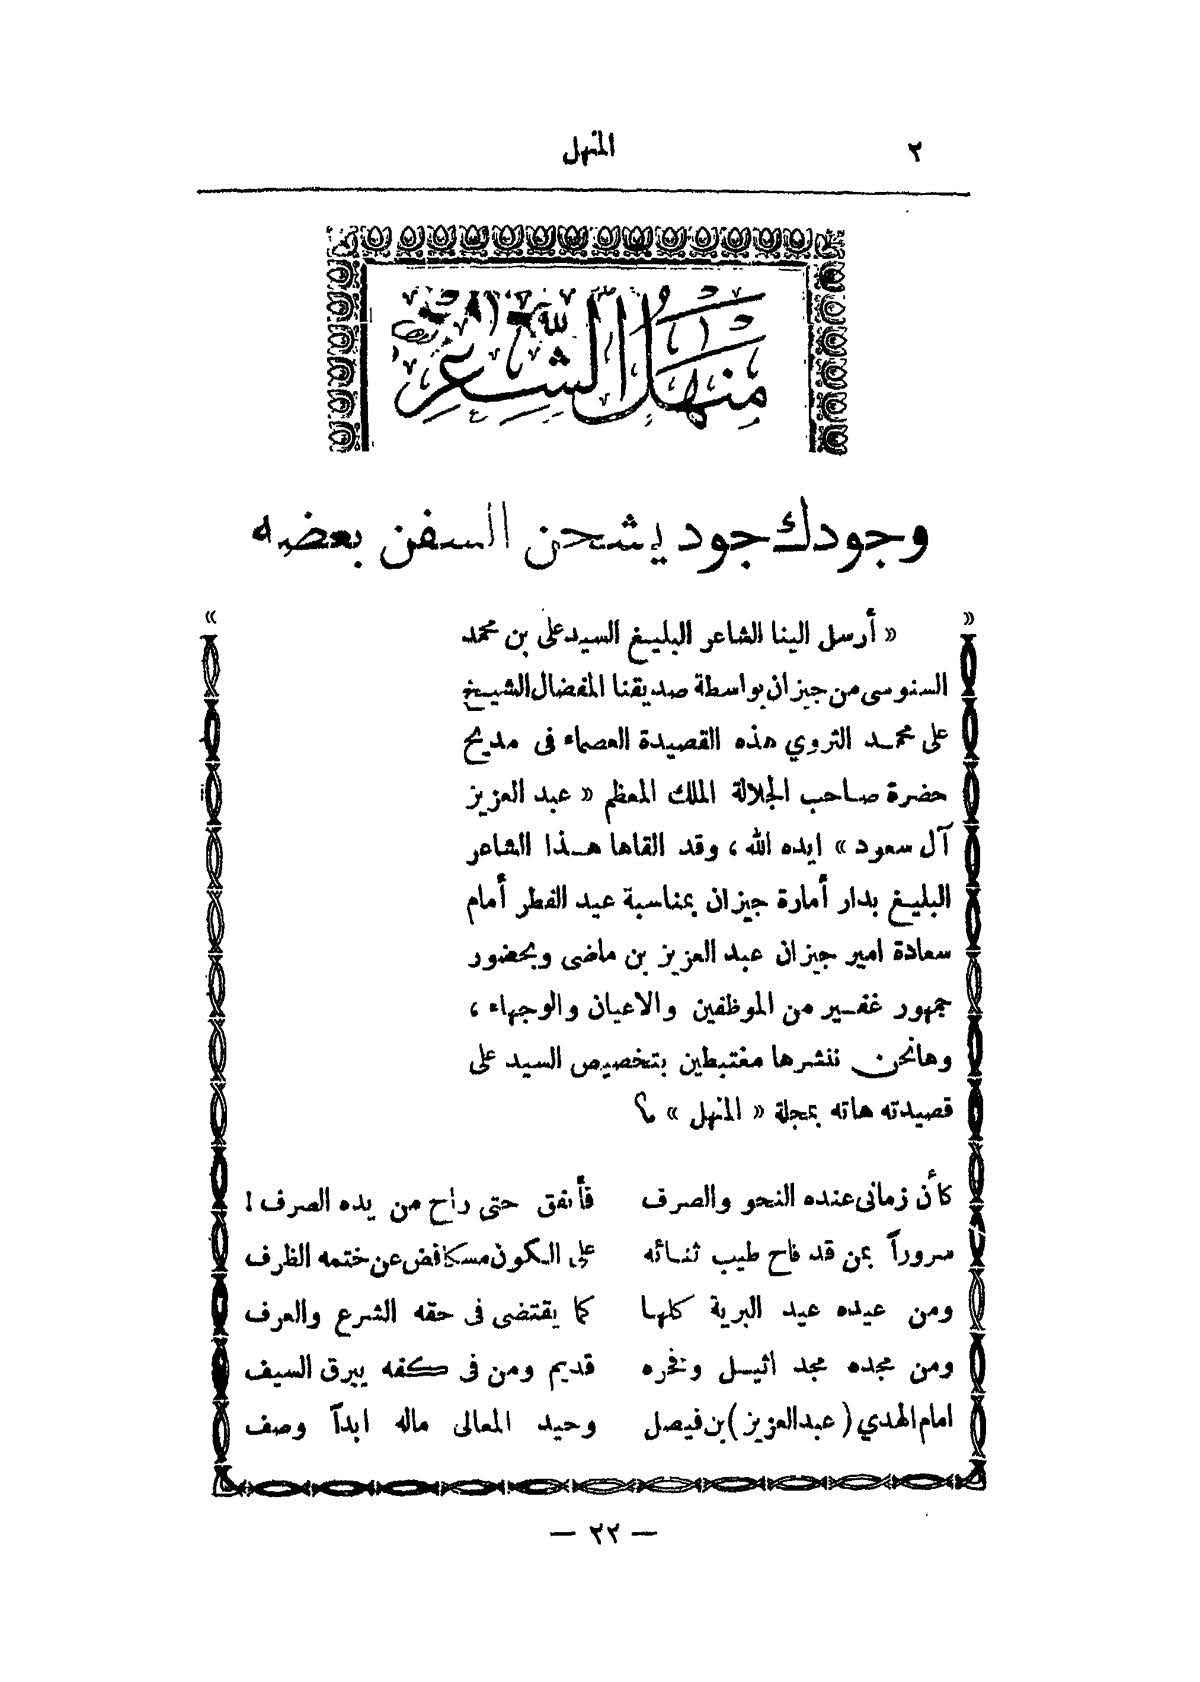 ٢ المنهل
منهل الشعر
وجودك جود يشحن السفن بعضه
« أرسل الينا الشاعر البليغ السيد على بن محمد
السنوسى من جيزان بواسطة صديقنا المفضال الشيخ
على محمد الثروي هذه القصيدة العصماء فى مديح
حضرة صاحب الجلالة الملك المعظم « عبد العزيز
آل سعود » ايده الله ، وقد القاها هذا الشاعر
البليغ بدار أمارة جيزان بمناسبة عيد الفطر أمام
سعادة امير جيزان عبد العزيز بن ماضى وبحضور
جمهور غفير من الموظفين والاعيان والوجهاء ،
وهانحن ننشرها مغتبطين بتخصيص السيد على
قصيدته هاته بمجلة « المنهل » ؟
كأن زمانى عنده النحو والصرف فأنفق حتى راح من يده الصرف !
سروراً بمن قد فاح طيب ثنائه على الكون مسكا فض عن ختمه الظرف
ومن عيده عيد البرية كلها كما يقتضى فى حقه الشرع والعرف
ومن مجده مجد اثيل وفخره قديم ومن فى كفه يبرق السيف
امام الهدي ( عبد العزيز ) بن فيصل وحيد المعالى ماله ابداً وصف
— ٢٢ —